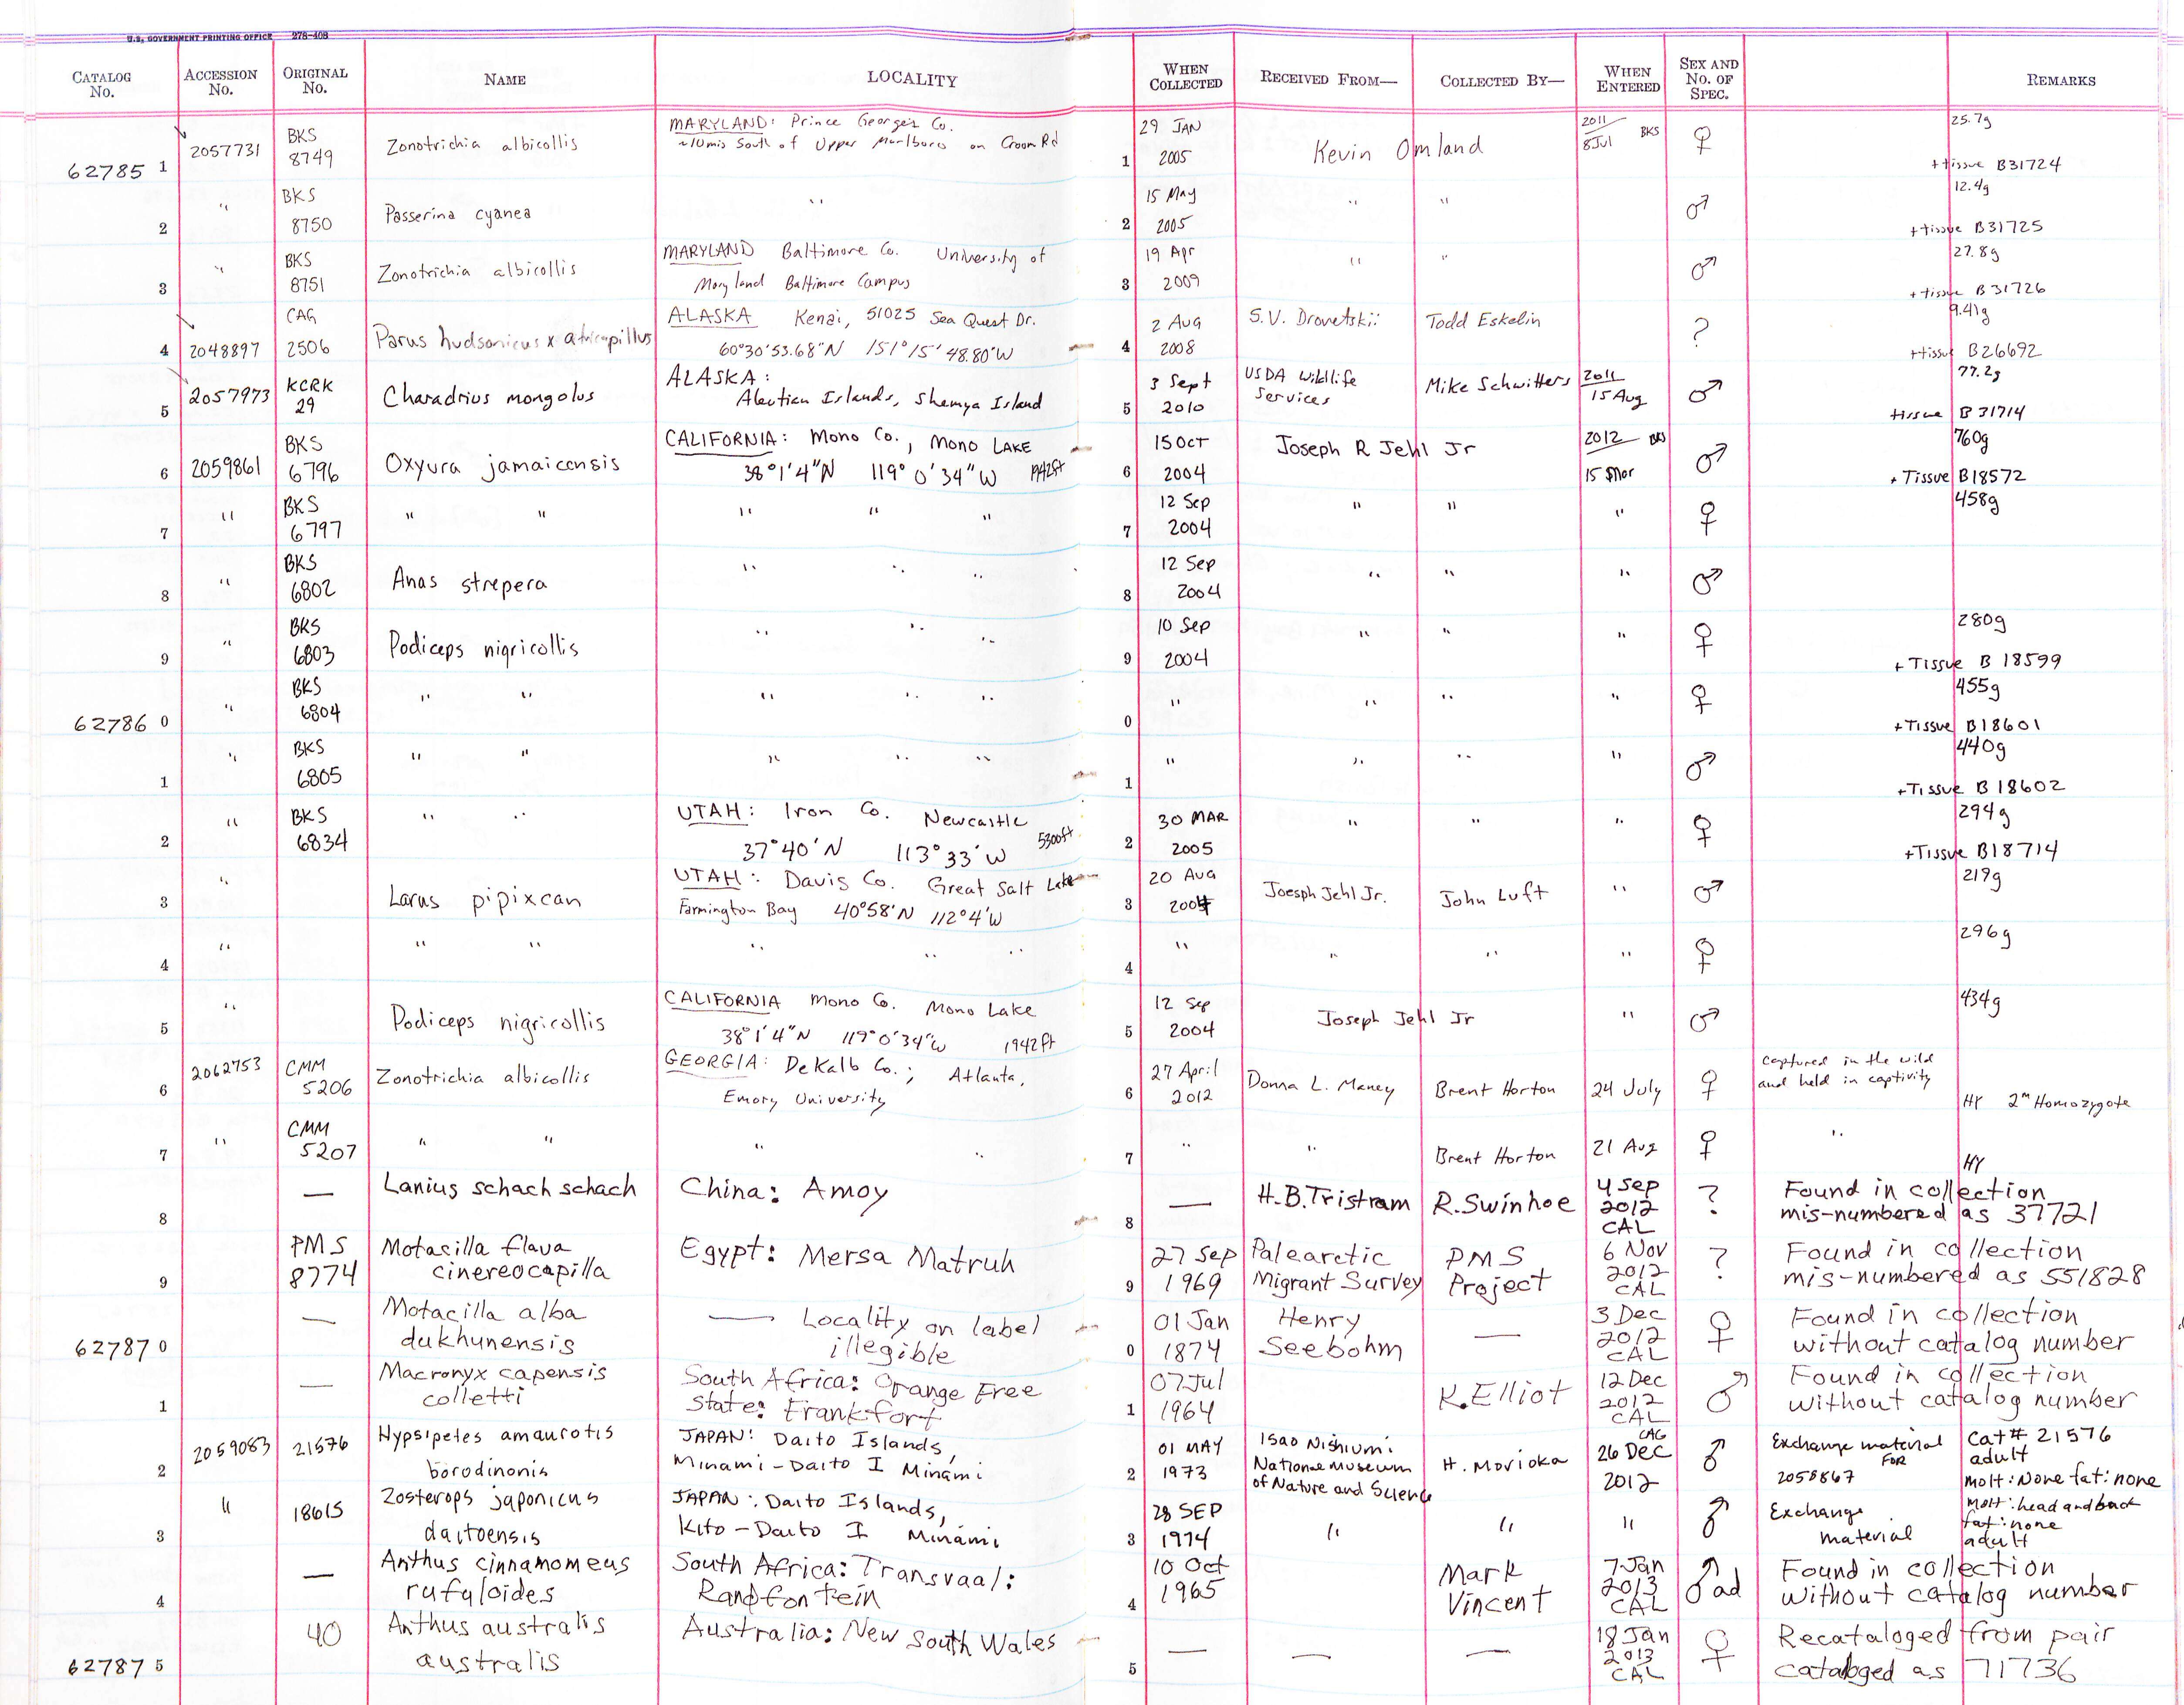 U.S. GOVERNMENT PRINTING OFFICE 278-408
CATALOG No. ACCESSION No. ORIGINAL No. NAME LOCALITY WHEN COLLECTED RECEIVED FROM— COLLECTED BY— WHEN ENTERED SEX AND No. OF SPEC. REMARKS
62785 1 2057731 BKS 8749 Zonotrichia albicollis MARYLAND: Prince George's Co. ~10mis South of Upper Marlboro on Croom Rd 1 29 JAN 2005 Kevin Omland 2011 8Jul BKS ♀ 25.7g +tissue B31724
2 " BKS 8750 Passerina cyanea " 2 15 May 2005 " " ♂ 12.4g +tissue B31725
3 " BKS 8751 Zonotrichia albicollis MARYLAND Baltimore Co. University of Maryland Baltimore Campus 3 19 Apr 2009 " " ♂ 27.8g +tissue B31726
4 2048897 CAG 2506 Parus hudsonicus x atricapillus ALASKA Kenai, 51025 Sea Quest Dr. 60°30'53.68"N 151°15'48.80"W 4 2 Aug 2008 S.V. Drovetskii Todd Eskelin ? 9.41g +tissue B26692
5 2057973 KCRK 29 Charadrius mongolus ALASKA: Aleutian Islands, Shemya Island 5 3 Sept 2010 USDA Wildlife Services Mike Schwitters 2011 15 Aug ♂ 77.2g tissue B31714
6 2059861 BKS 6796 Oxyura jamaicensis CALIFORNIA: Mono Co., Mono LAKE 38°1'4"N 119°0'34"W 1942ft 6 15 Oct 2004 Joseph R Jehl Jr 2012 BKS 15 Mar ♂ 760g + Tissue B18572
7 " BKS 6797 " " " " " 7 12 Sep 2004 " " " ♀ 458g
8 " BKS 6802 Anas strepera " " " 8 12 Sep 2004 " " " ♂
9 " BKS 6803 Podiceps nigricollis " " " 9 10 Sep 2004 " " " ♀ 280g + Tissue B 18599
62786 0 " BKS 6804 " " " " " 0 " " " " ♀ 455g +Tissue B18601
1 " BKS 6805 " " " " " 1 " " " " ♂ 440g +Tissue B18602
2 " BKS 6834 " " UTAH: Iron Co. Newcastle 37°40'N 113°33'W 5300ft 2 30 MAR 2005 " " " ♀ 294g +Tissue B18714
3 " Larus pipixcan UTAH: Davis Co. Great Salt Lake Farmington Bay 40°58'N 112°4'W 3 20 Aug 2004 Joesph Jehl Jr. John Luft " ♂ 219g
4 " " " " " " 4 " " " " ♀ 296g
5 " Podiceps nigricollis CALIFORNIA Mono Co. Mono Lake 38°1'4"N 119°0'34"W 1942ft 5 12 Sep 2004 Joseph Jehl Jr " ♂ 434g
6 2062753 CMM 5206 Zonotrichia albicollis GEORGIA: DeKalb Co.; Atlanta, Emory University 6 27 April 2012 Donna L. Maney Brent Horton 24 July ♀ captured in the wild and held in captivity HY 2m Homozygote
7 " CMM 5207 " " " " 7 " " Brent Horton 21 Aug ♀ " HY
8 — Lanius schach schach China: Amoy 8 — H.B.Tristram R.Swinhoe 4 Sep 2012 CAL ? Found in collection mis-numbered as 37721
9 PMS 8774 Motacilla flava cinereocapilla Egypt: Mersa Matruh 9 27 Sep 1969 Palearctic Migrant Survey PMS Project 6 Nov 2012 CAL ? Found in collection mis-numbered as 551828
62787 0 — Motacilla alba dukhunensis — Locality on label illegible 0 01 Jan 1874 Henry Seebohm — 3 Dec 2012 CAL ♀ Found in collection without catalog number
1 — Macronyx capensis colletti South Africa: Orange Free State: Frankfort 1 07 Jul 1964 K.Elliot 12 Dec 2012 CAL ♂ Found in collection without catalog number
2 2059083 21576 Hypsipetes amaurotis borodinonis JAPAN: Daito Islands, Minami-Daito I Minami 2 01 MAY 1973 Isao Nishiumi National Museum of Nature and Science H. Morioka CAG 26 Dec 2012 ♂ Exchange material FOR 2058867 Cat# 21576 adult molt: None fat: none
3 " 18615 Zosterops japonicus daitoensis JAPAN: Daito Islands, Kito-Daito I Minami 3 28 SEP 1974 " " " ♂ Exchange material molt: head and back fat: none adult
4 — Anthus cinnamomeus rufuloides South Africa: Transvaal: Randfontein 4 10 Oct 1965 Mark Vincent 7 Jan 2013 CAL ♂ ad Found in collection without catalog number
62787 5 40 Anthus australis australis Australia: New South Wales 5 — — — 18 Jan 2013 CAL ♀ Recataloged from pair cataloged as 71736